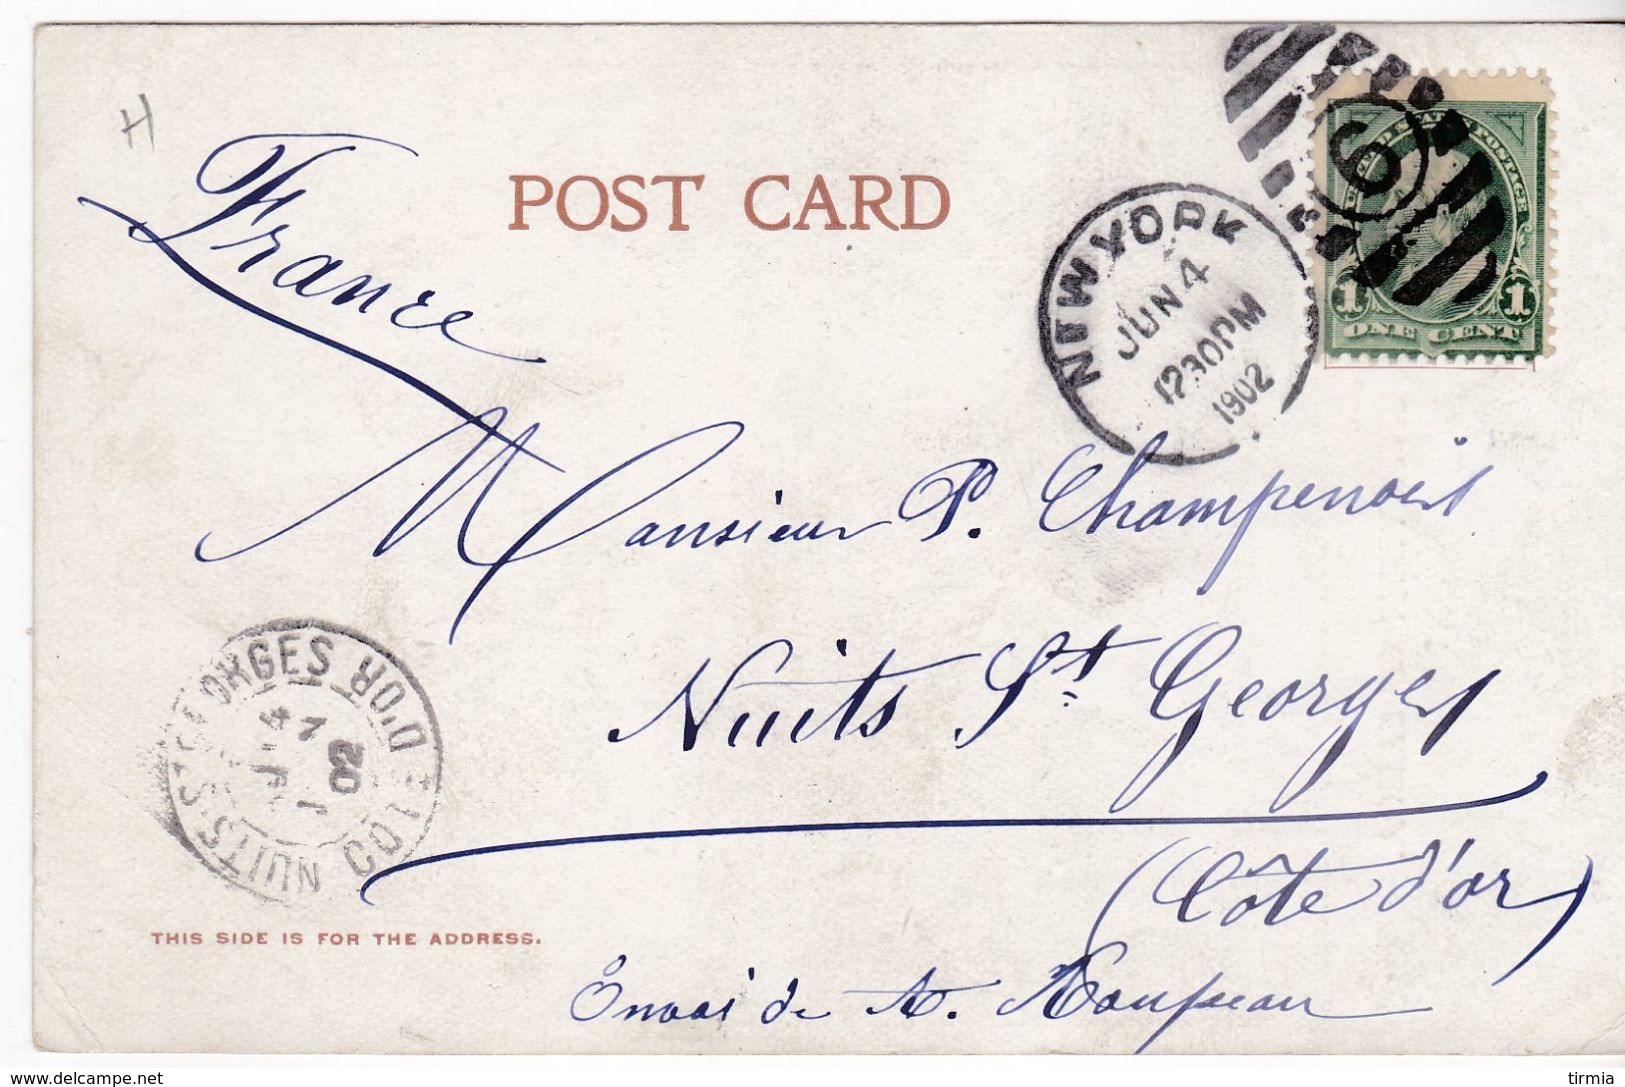 H
France
POST CARD
NEW YORK
JUN 4
1230PM
1902
6
UNITED STATES POSTAGE
1 1
ONE CENT
Monsieur P. Champenois
Nuits St Georges
(Côte d'or)
NUITS-ST-GEORGES COTE D'OR
02
THIS SIDE IS FOR THE ADDRESS.
Envoi de A.
www.delcampe.net
tirmia